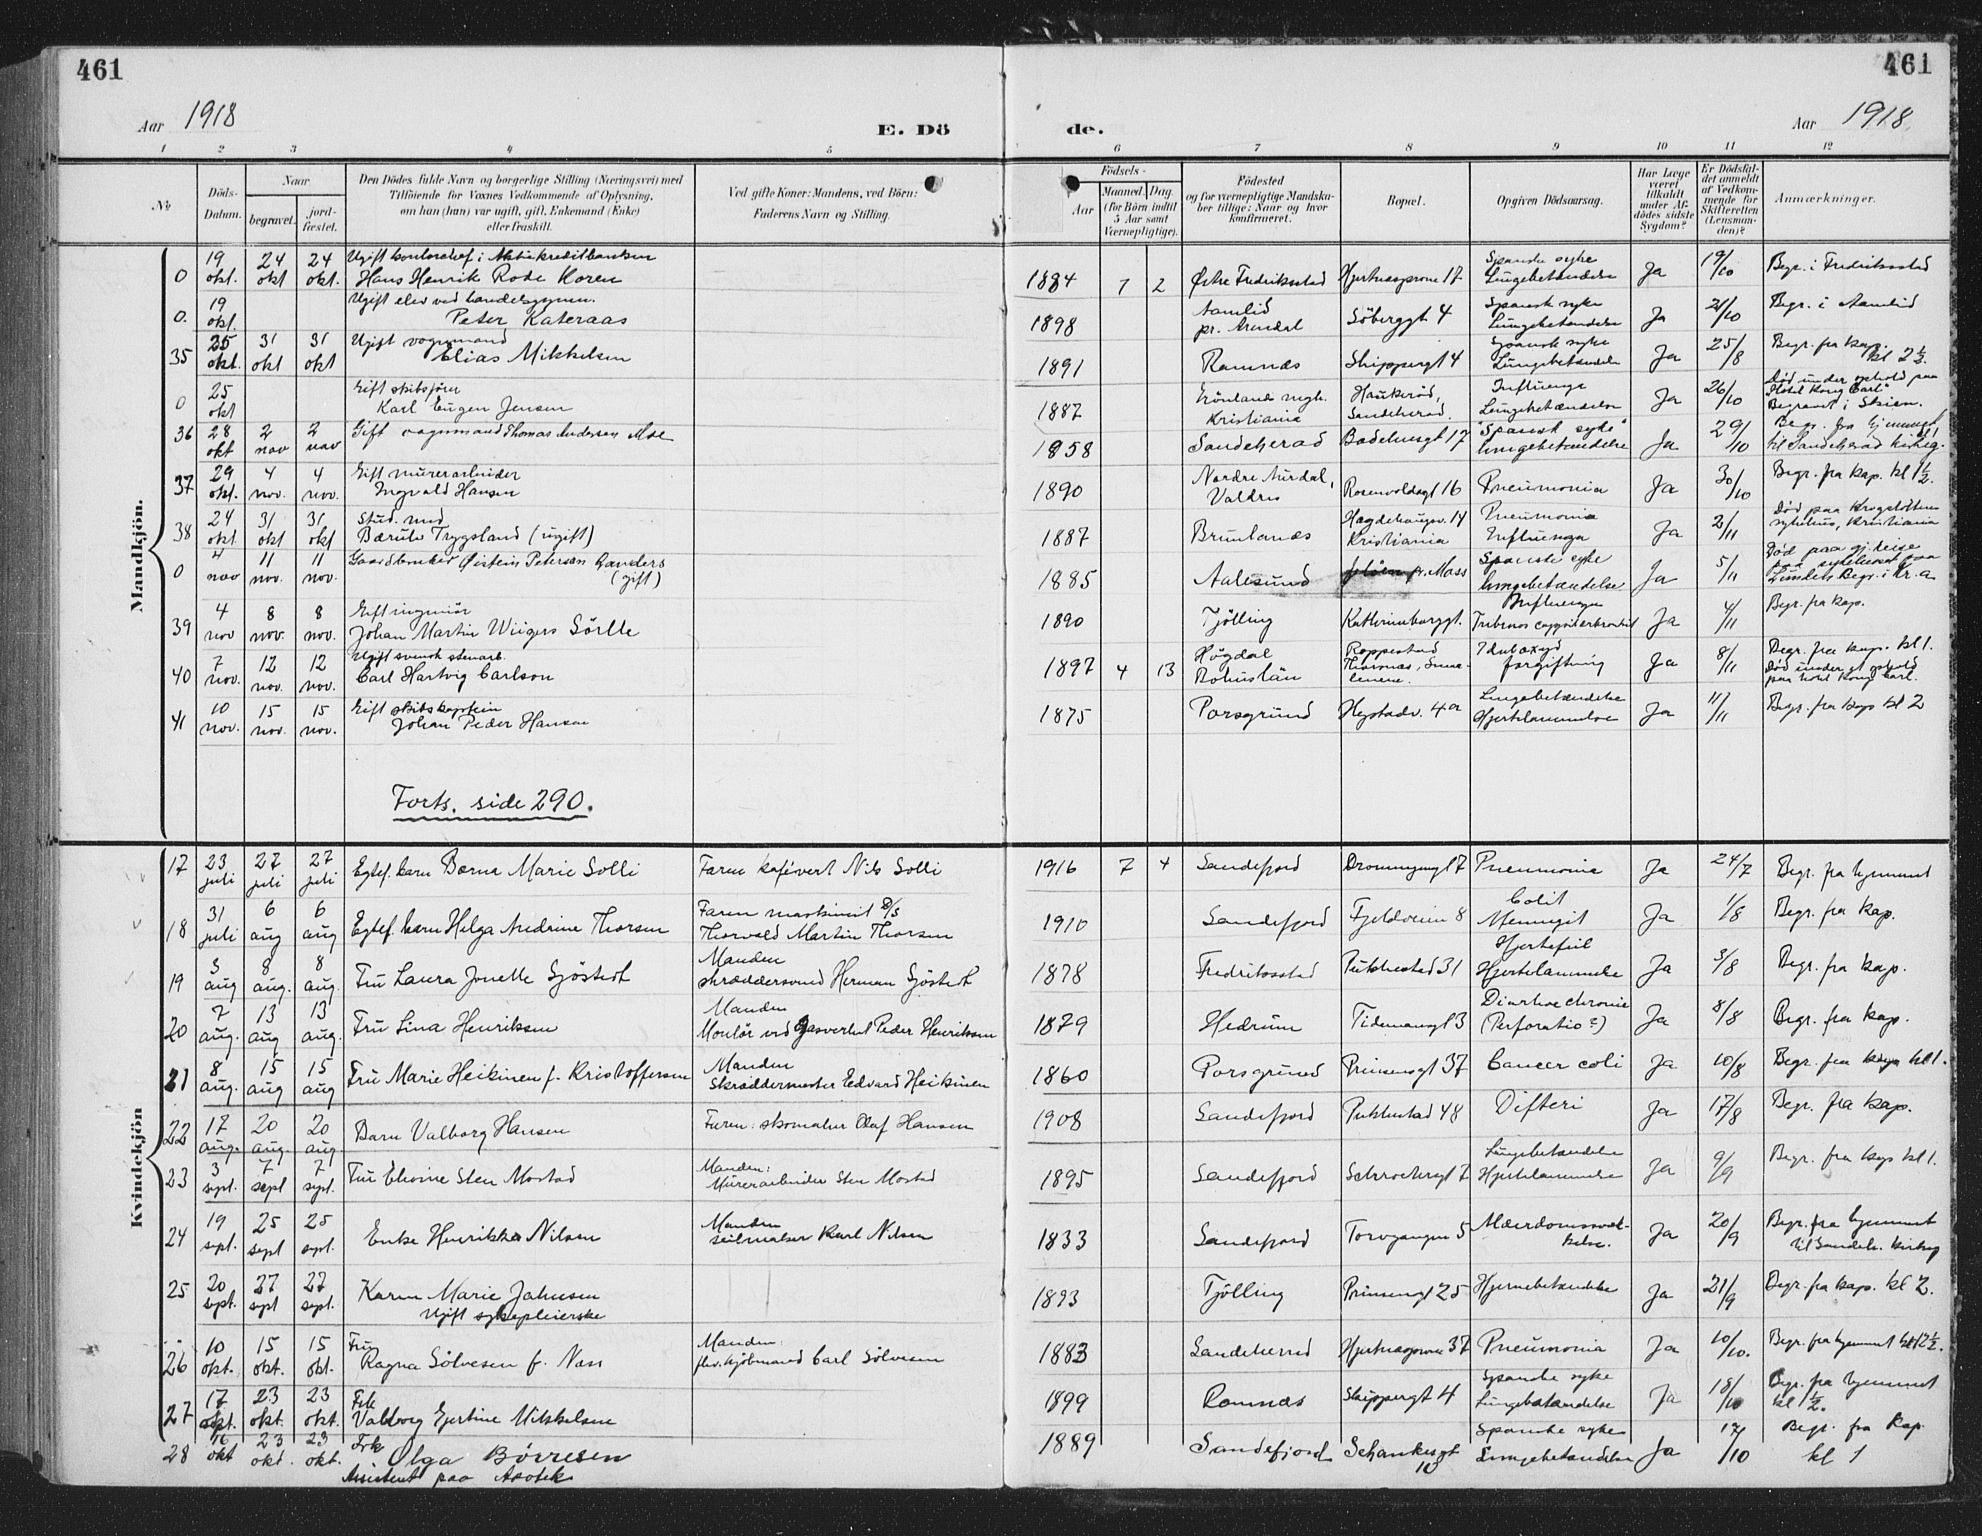 461
461
Aar 1918
E. Dö
de.
Aar 1918.
1 2 3 4 5 6 7 8 9 10 11 12
№
Döds-Datum.
Naar
begravet.
jord-fæstet.
Den Dödes fulde Navn og borgerlige Stilling (Næringsvei) med
Tilföiende for Voxnes Vedkommende af Oplysning,
om han (hun) var ugift, gift, Enkemand (Enke)
eller fraskilt.
Ved gifte Koner: Mandens, ved Börn:
Faderens Navn og Stilling.
Födsels-
Aar
Maaned. Dag.
(for Börn indtil
5 Aar samt
Værnepligtige).
Födested
og for værnepligtige Mandska-
ber tillige: Naar og hvor
konfirmeret.
Bopæl.
Opgiven Dödsaarsag.
Har Læge
været
tilkaldt
under Af-
dödes sidste
Sygdom?
Er Dödsfal-
det anmeldt
af Vedkom-
mende for
Skifteretten
(Lensman-
den)?
Anmærkninger.
Mandkjön.
0 19 okt. 24 okt 24 okt. Ugift kontorchef i Aktiekreditbanken
Hans Henrik Rode Koren 1884 7 2 Østre Fredriksstad Hjertnespromn 17 Spanske syke
Lungebetændelse Ja 19/10 Begr. i Fredriksstad
0. 19 okt. Ugift elev ved handelsgymn.
Peter Kateraas 1898 Aamlid
pr. Arendal Söberggt 4 Spansk syke
Lungebetændelse Ja 21/10 Begr. i Aamlid
35 25 okt. 31 okt 31 okt Ugift vognmand
Elias Mikkelsen 1891 Ramnæs Skippergt 4 Spansk syke
Lungebetændelse Ja 25/8 Begr. fra kap.
kl 2½.
0 25 okt Gift skibsförer
Karl Eugen Jensen 1887 Grönlands megh.
Kristiania Haukeröd,
Sandeherad. Influenza
Lungebetændelse Ja 26/10 Död under ophold paa
"Hotel Kong Carl"
Begravet i Skien.
36 28 okt 2 nov 2 nov Gift vognmand Thomas Andersen Moe 1858 Sandeherad Badehusgt 17 "Spansk syke"
lungebetændelse Ja 29/10 Begr. fra hjemmet
til Sandeherad kirkeg.
37 29 okt. 4 nov. 4 nov. Gift murerarbeider
Ingvald Hansen 1890 Nordre Aurdal,
Valdres Rosenvoldsgt 16 Pneumonia Ja 30/10 Begr. fra kap. kl 1½.
38 24 okt 31 okt 31 okt Stud. med
Bærulv Trygsland (ugift) 1887 Brunlanæs Hægdehaugsv. 14
Kristiania Pneumonia
Influenza Ja 2/11 Död paa Krogstöttens
sykehus, Kristiania
0 4 nov 11 nov. 11 nov. Gaardbruker Øistein Petersen
(gift) 1885 Aalesund pr. Moss Spanske syke
lungebetændelse Ja 5/11 Död paa gj.reise
paa sykehuset paa
Begr. i Kr.a
39 4 nov 8 nov. 8 nov. Gift ingeniör
Johan Martin Wiigers Sörlle 1890 Tjölling Kathrineborggt. Influenza Ja 4/11 Begr. fra kap.
40 7 nov. 12 nov. 12 nov. Ugift svensk stenarb.
Carl Hartvig Carlson 1897 4 13 Högdal
Bohuslän forgiftning Ja 8/11 Begr. fra kap. kl 1.
Död under et ophold
paa hotel Kong Carl.
41 10 nov. 15 nov. 15 nov. Gift skibskaptein
Johan Peder Hansen 1875 Porsgrund Hystadv. 4a Lungebetændelse
Hjertelammelse Ja 11/11 Begr. fra kap kl 2
Forts. side 290.
Kvindekjön
17 23 juli 27 juli 27 juli Egtef. barn Berna Marie Solli Faren kafévert Nils Solli 1916 7 4 Sandefjord Dronningengt 7 Pneumonia Ja 24/7 Begr. fra hjemmet
18 31 juli 6 aug 6 aug Egtef. barn Helga Andrine Thorsen Faren maskinist D/S
Thorvald Martin Thorsen 1910 Sandefjord Fjeldveien 8 Colit
Meningit Ja 1/8 Begr. fra Kap.
19 3 aug 8 aug. 8 aug. Fru Laura Jonette Sjöstedt Manden
skræddersvend Herman Sjöstedt 1878 Fredriksstad Pukkestad 31 Hjertefeil
Hjertelammelse Ja 3/8 Begr. fra kap.
20 7 aug. 13 aug 13 aug. Fru Lina Henriksen Manden
Montör ved Gasverket Peder Henriksen 1879 Hedrum Tidemansgt 3 Diarrhoe chronic
(Perforatio?) Ja 8/8 Begr. fra kap.
21 8 aug. 15 aug 15 aug Fru Marie Heikinen f. Kristoffersen Manden
Skræddermester Edvard Heikinen 1860 Porsgrund Prinsensgt 37 Cancer coli Ja 10/8 Begr. fra kap kl 1.
22 17 aug. 20 aug. 20 aug. Barn Valborg Hansen Faren: skomaker Olaf Hansen 1908 Sandefjord Pukkestad 48 Difteri Ja 17/8 Begr. fra kap.
23 3 sept. 7 sept 7 sept. Fru Elvine Sten Mostad Manden:
Murerarbeider Sten Mostad 1895 Sandefjord Schrödersgt 7 Lungebetændelse
Hjertelammelse Ja 9/9 Begr. fra kap kl 1.
24 19 sept. 25 sept 25 sept. Enke Henrikka Nilsen Manden
seilmaker Karl Nilsen 1833 Sandefjord Torvgangen 5 Alderdomssvek-
kelse. Ja 20/9 Begr. fra hjemmet
til Sandeh. kirkeg
25 20 sept. 27 sept 27 sept. Karen Marie Jahnsen
Ugift sykepleierske 1893 Tjölling Prinsensgt 25 Hjernebetændelse Ja 21/9 Begr. fra kap. kl 2.
26 10 okt. 15 okt. 15 okt. Fru
Ragna Sölvesen f. Næss Manden:
fhv. kjöbmand Carl Sölvesen 1883 Sandeherred Hjertnespromn 37 Pneumonia Ja 10/10. Begr. fra hjemmet kl 12½.
27 17 okt. 23 okt. 23 okt. Frk
Valborg Gjertine Mikkelsen 1899 Ramnæs Skippergt 4 Spanske syke
Lungebetændelse Ja 18/10 Begr. fra hjemmet
kl 1½.
28 16 okt 23 okt. 23 okt. Frk Olga Börresen
Assistent paa Apotek 1889 Sandefjord Schankesgt
10 Spanske syke
Lungebetændelse Ja 17/10 Begr. fra Kap.
kl 1